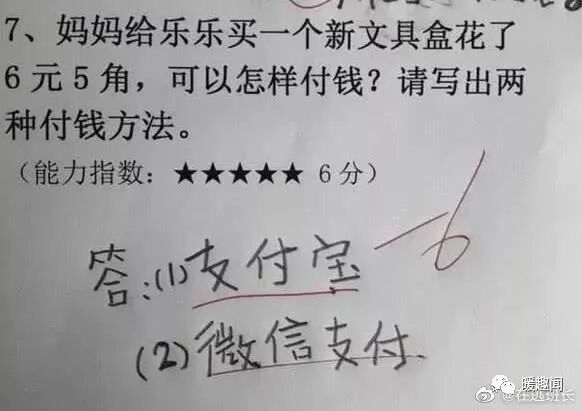 7、妈妈给乐乐买一个新文具盒花了
6元5角，可以怎样付钱？请写出两
种付钱方法。
（能力指数：★★★★★ 6分）
答:(1)支付宝 -6
(2)微信支付.
暖趣闻
@在逃班长